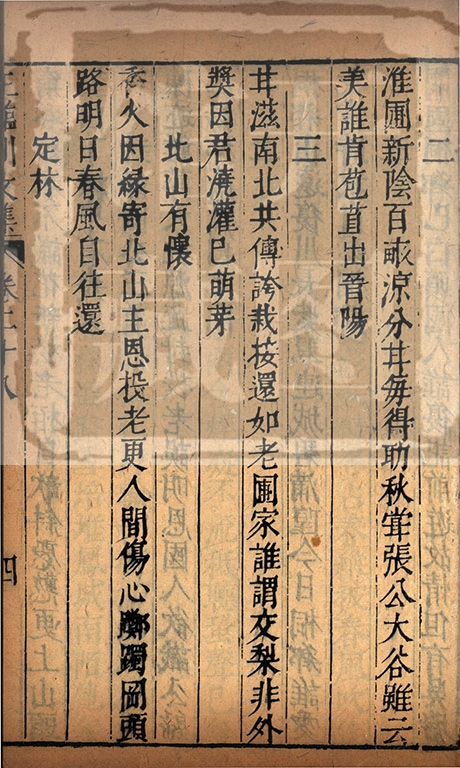 二
淮圃新陰百畝涼分甘每得助秋嘗張公大谷雖云
美誰肯苞苴出晉陽
三
甘滋南北共傳誇栽接還如老圃家誰謂交梨非外
奬因君澆灌已萌芽
北山有懷
香火因緣寄北山主恩投老更人間傷心躑躅岡頭
路明日春風自往還
定林
王臨川文集 卷二十八 四